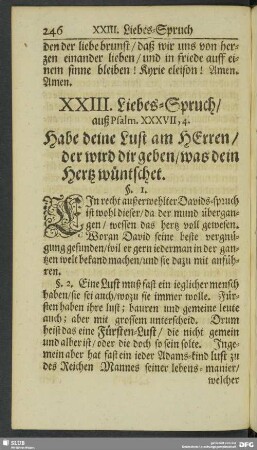 246 XXIII. Liebes-Spruch
den der liebe brunst/ daß wir uns von her-
zen einander lieben/ und in friede auff ei-
nem sinne bleiben! Kyrie eleison! Amen.
Amen.
XXIII. Liebes-Spruch/
auß Psalm. XXXVII, 4.
Habe deine Lust am HErren/
der wird dir geben/ was dein
Hertz wüntschet.
§. 1.
EIn recht außerwehlter Davids-spruch
ist wohl dieser/ da der mund übergan-
gen/ wessen das hertz voll gewesen.
Woran David seine beste vergnü-
gung gefunden/ wil er gern iederman in der gan-
tzen welt bekand machen/ und sie dazu mit anfüh-
ren.
§. 2. Eine Lust muß fast ein ieglicher mensch
haben/ sie sei auch/ wozu sie immer wolle. Für-
sten haben ihre lust; bauren und gemeine leute
auch; aber mit grossem unterscheid. Drum
heist das eine Fürsten-Lust/ die nicht gemein
und alber ist/ oder die doch so sein solte. Inge-
mein aber hat fast ein ieder Adams-kind lust zu
des Reichen Mannes seiner lebens-manier/
welcher
SLUB
DFG